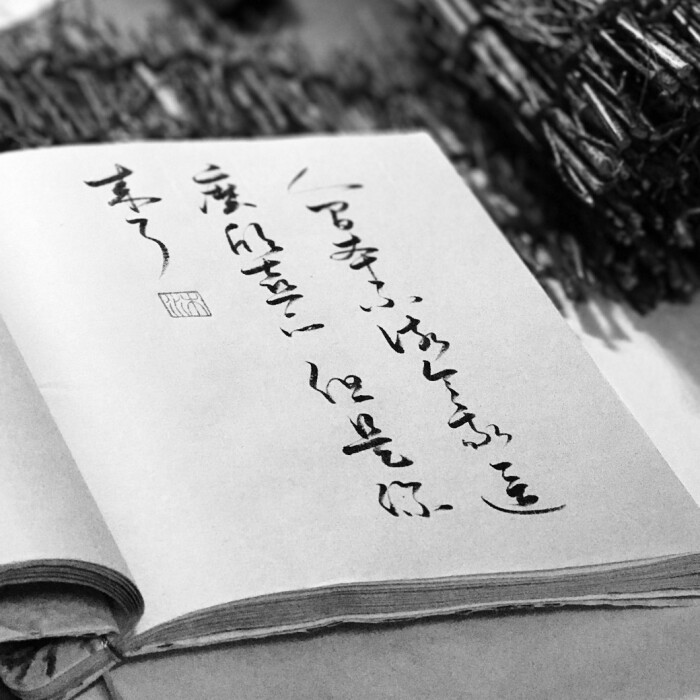 人间本不该令我这
么欣喜的 但是你
来了